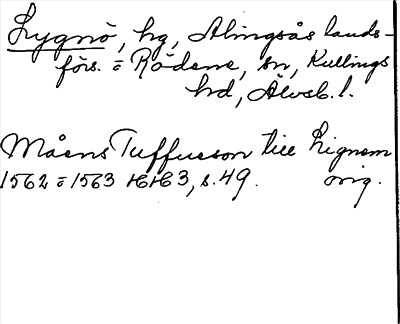 Lygnö, hg, Alingsås lands-
förs. = Rödene, sn, Kullings
hd, Älvsb. l.
Måens Tuffuesson till Lignem
1562 = 1563 HH 3, s. 49. orig.